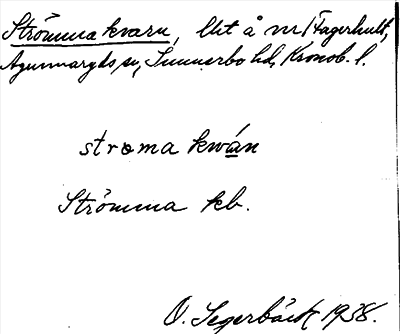 Strömma kvarn, Utt å nr 1 Fagerhult,
Agunnaryds sn, Sunnerbo hd, Kronob. l.
stroma kwán
Strömma kb.
O. Segerbäck 1938.